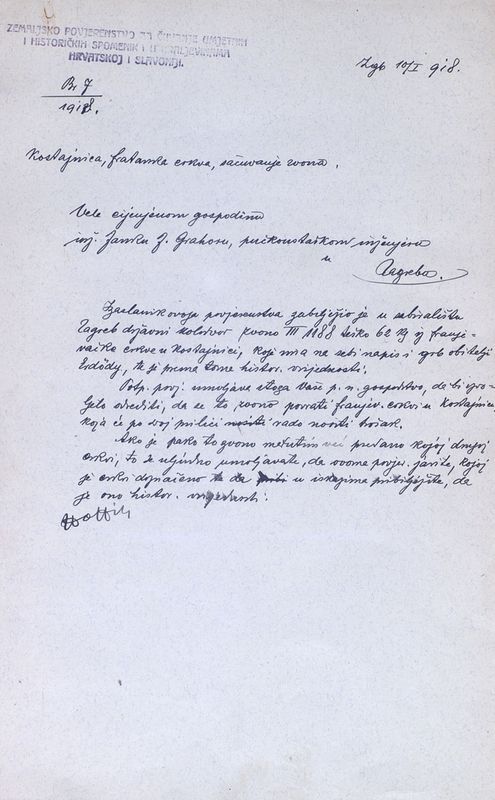 ZEMALJSKO POVJERENSTVO ZA ČUVANJE UMJETNIH
I HISTORIČKIH SPOMENIKA U KRALJEVINAMA
HRVATSKOJ I SLAVONIJI.
Zgb 10/I 918.
Br. 7
1918.
Kostajnica, fratarska crkva, sačuvanje zvona.
Vele cijenjenom gospodinu
inž. Janku J. Grahoru, pučkoustaškom inženjeru
u
Zagrebu.
Izaslanik ovoga povjerenstva zabilježio je u sabiralištu
Zagreb državni kolodvor zvono III 1188 teško 62 kg iz franje-
vačke crkve u Kostajnici, koji ima na sebi napis i grb obitelji
Erdödy, te je prema tome histor. vrijednosti.
Potp. povj. umoljava stoga Vaše p. n. gospodstvo, da bi izvo-
ljelo odrediti, da se to zvono povrati franjev. crkvi u Kostajnici,
koja će po svoj prilici rado nositi trošak.
Ako je pako to zvono međutim već predano kojoj drugoj
crkvi, to se uljudno umoljavate, da ovome povjer. javite, kojoj
je crkvi doznačeno te da u iskazima pribilježite, da
je ono histor. vrijednosti.